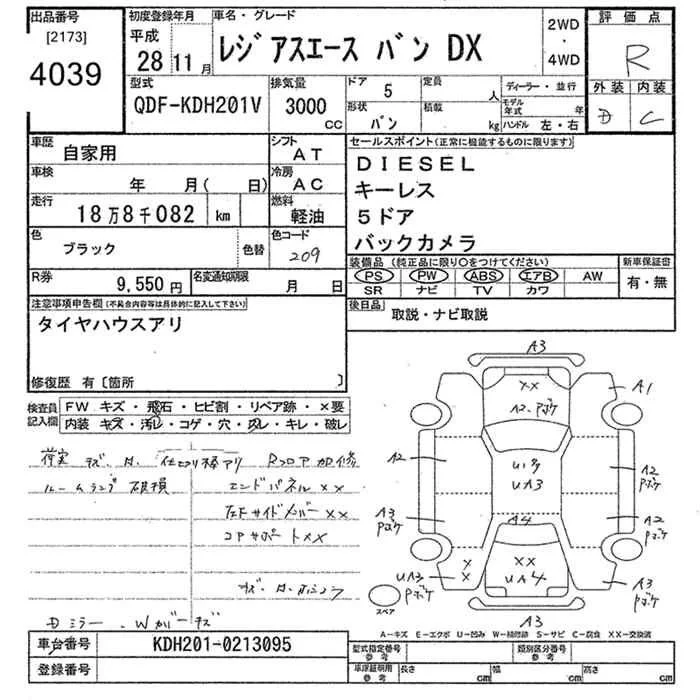 出品番号
[2173]
4039
初度登録年月
平成
28年11月
車名・グレード
レジアスエース バン DX
2WD
・
4WD
評価点
R
外装 内装
D C
型式
QDF-KDH201V
排気量
3000
CC
ドア
5
定員
人
形状
バン
積載
kg
ディーラー・並行
モデル年式 年
ハンドル 左・右
車歴
自家用
シフト
AT
車検
年 月( 日)
冷房
AC
走行
18万8千082 km
燃料
軽油
色
ブラック
色替
色コード
209
R券
9,550円
名変通知期限
月 日
セールスポイント(正常に機能するものに限ります)
DIESEL
キーレス
5ドア
バックカメラ
装備品 (純正品に限り○をつけてください)
PS PW ABS エアB AW
SR ナビ TV カワ
新車保証書
有・無
後日品
取説・ナビ取説
注意事項申告欄 (不具合内容等は具体的に記入して下さい)
タイヤハウスアリ
修復歴 有〔箇所 〕
検査員記入欄
FW キズ・飛石・ヒビ割・リペア跡・×要
内装 キズ・汚レ・コゲ・穴・凹レ・キレ・破レ
荷室 キズ、
Rフロア 加修
ルームランプ 破損
エンドパネル ××
左Fサイドメンバー ××
コアサポート ××
Dミラー、Wカバーキズ
A3
XX
A2、Pボケ
A1
A2
U1多
UA3
A2
Pボケ
A3
Pボケ
A4
A2
Pボケ
X
X
UA3
Pボケ
XX
UA4
A3
Pボケ
スペア
A3
A-キズ E-エクボ U-凹み W-補修跡 S-サビ C-腐食 XX-交換済
車台番号
KDH201-0213095
登録番号
型式指定番号
参考
類別区分番号
参考
車庫証明用
参考
長さ
cm
幅
cm
高さ
cm